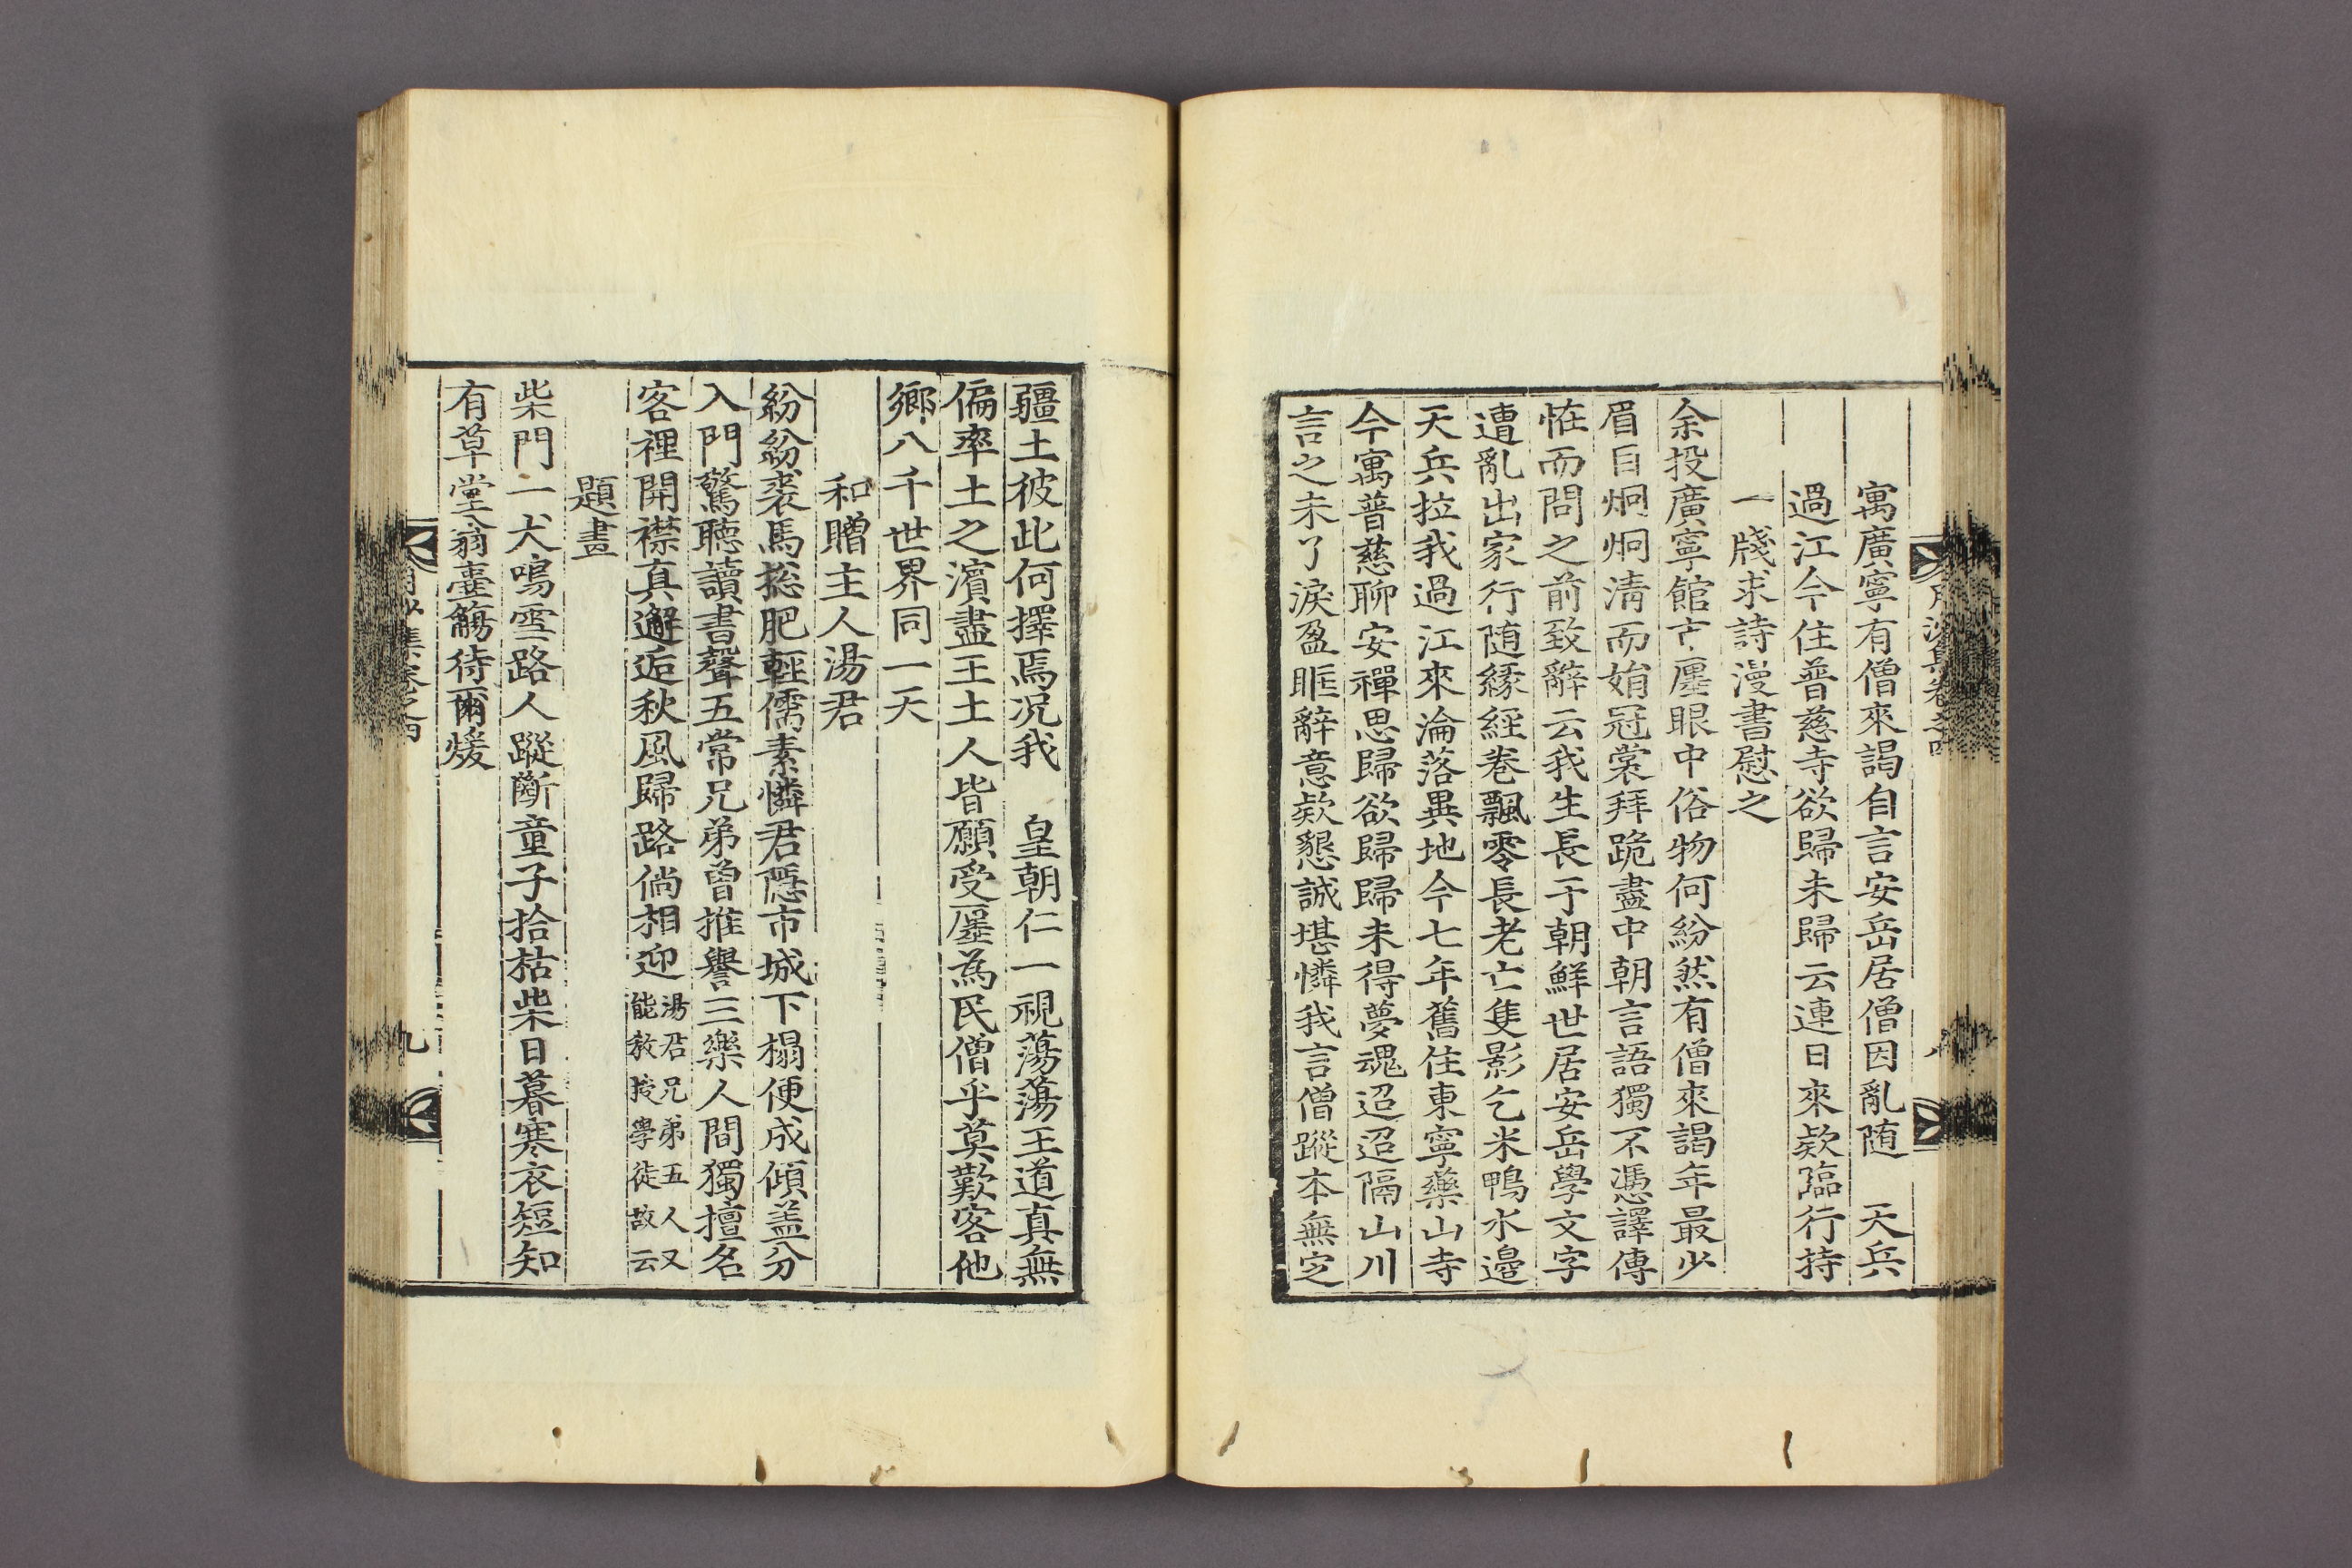 寓廣寧有僧來謁自言安岳居僧因亂随　天兵
過江今住普慈寺欲歸未歸云連日來欵臨行持
一牋求詩漫書慰之
余投廣寧館古廛眼中俗物何紛然有僧來謁年最少
眉目炯炯淸而娟冠裳拜跪盡中朝言語獨不憑譯傳
恠而問之前致辭云我生長于朝鮮世居安岳學文字
遭亂出家行随緣經卷飄零長老亡隻影乞米鴨水邉
天兵拉我過江來淪落異地今七年舊住東寧藥山寺
今寓普慈聊安禪思歸欲歸歸未得夢魂迢迢隔山川
言之未了淚盈眶辭意欵懇誠堪憐我言僧蹤本無㝎
疆土彼此何擇焉况我　皇朝仁一視蕩蕩王道真無
偏率土之濱盡王土人皆願受廛為民僧乎莫歎客他
鄉八千世界同一天
和贈主人湯君
紛紛裘馬㧾肥輕儒素憐君隱市城下榻便成傾盖分
入門驚聽讀書聲五常兄弟曾推譽三樂人間獨擅名
客裡開襟真邂逅秋風歸路倘相迎湯君兄弟五人又能敎授學徒故云
題畫
柴門一犬鳴雪路人蹤斷童子拾枯柴日暮寒衣短知
有草堂翁壷觴待爾煖
九